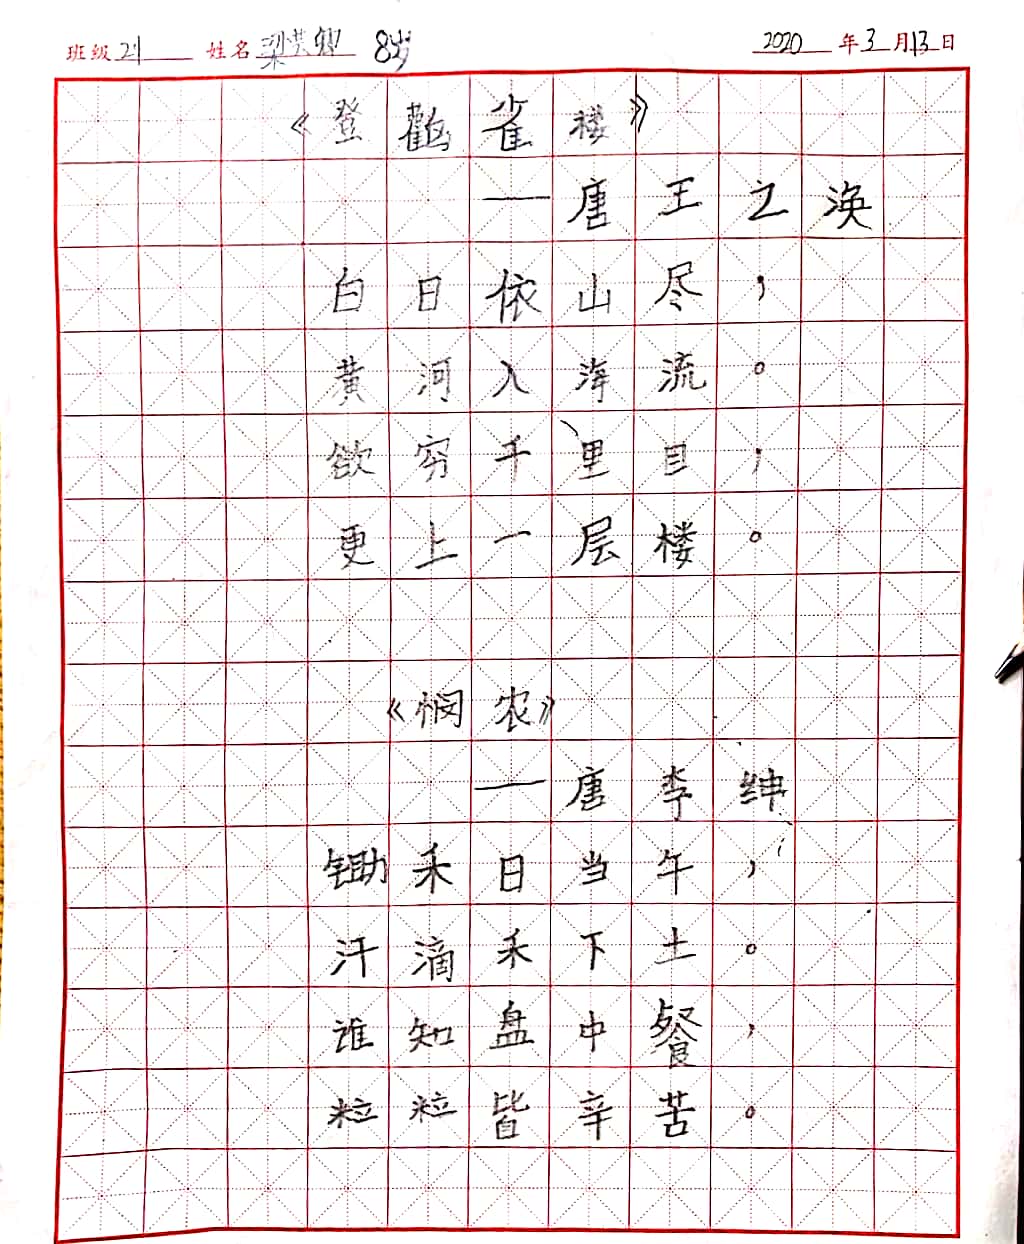 班级21 姓名梁 8岁 2020年3月13日
《登鹳雀楼》
——唐王之涣
白日依山尽，
黄河入海流。
欲穷千里目，
更上一层楼。
《悯农》
——唐李绅
锄禾日当午，
汗滴禾下土。
谁知盘中餐，
粒粒皆辛苦。